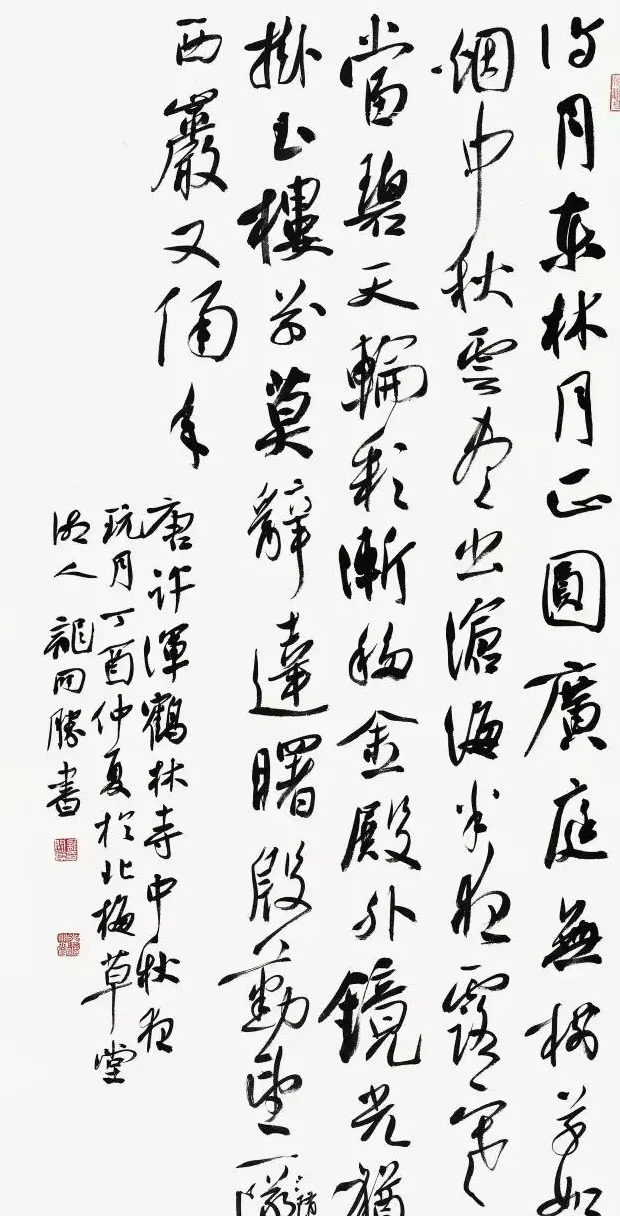 待月東林月正圓廣庭無樹草如
烟中秋雲盡出滄海半夜露寒
當碧天輪彩漸移金殿外鏡光猶
掛玉樓前莫辭達曙殷勤望一
西巖又隔年
唐許渾鶴林寺中秋夜
玩月丁酉仲夏於北梅草堂
湘人龍開勝書